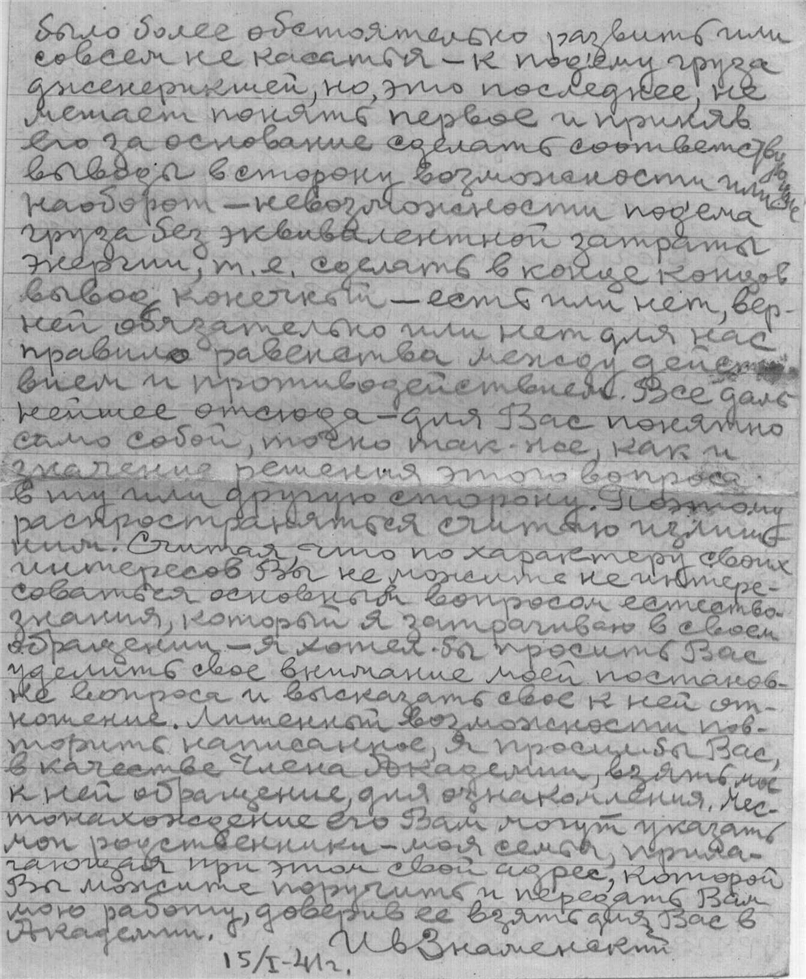 было более обстоятельно развить или
совсем не касаться – к подему груза
дженерикшей, но, это последнее, не
мешает понять первое и приняв
его за основание сделать соответствующие
выводы в сторону возможности или
наоборот – невозможности подема
груза без эквивалентной затраты
энергии, т.е. сделать в конце концов
вывод конечный – есть или нет, вер-
ней обязательно или нет для нас
правило равенства между дейст-
вием и противодействием. Все даль
нейшее отсюда – для Вас понятно
само собой, точно так-же, как и
значение решения этого вопроса
в ту или другую сторону. Поэтому
распространяться считаю излиш-
ним. Считая что по характеру своих
интересов Вы не можите не интере-
соваться основным вопросом естество-
знания, который я затрагиваю в своем
обращении – я хотел-бы просить Вас
уделить свое внимание моей постанов-
ке вопроса и высказать свое к ней от-
ношение. Лишенный возможности пов-
торить написанное, я просил бы Вас,
в качестве Члена Академии, взять мое
к ней обращение, для ознакомления. Мес-
тонахождение его Вам могут указать
мои родственники – моя семья, прила-
гающая при этом свой адрес, которой
Вы можите поручить и передать Вам
мою работу, доверив ее взять для Вас в
Академии.
Ив Знаменский
15/I-41г.